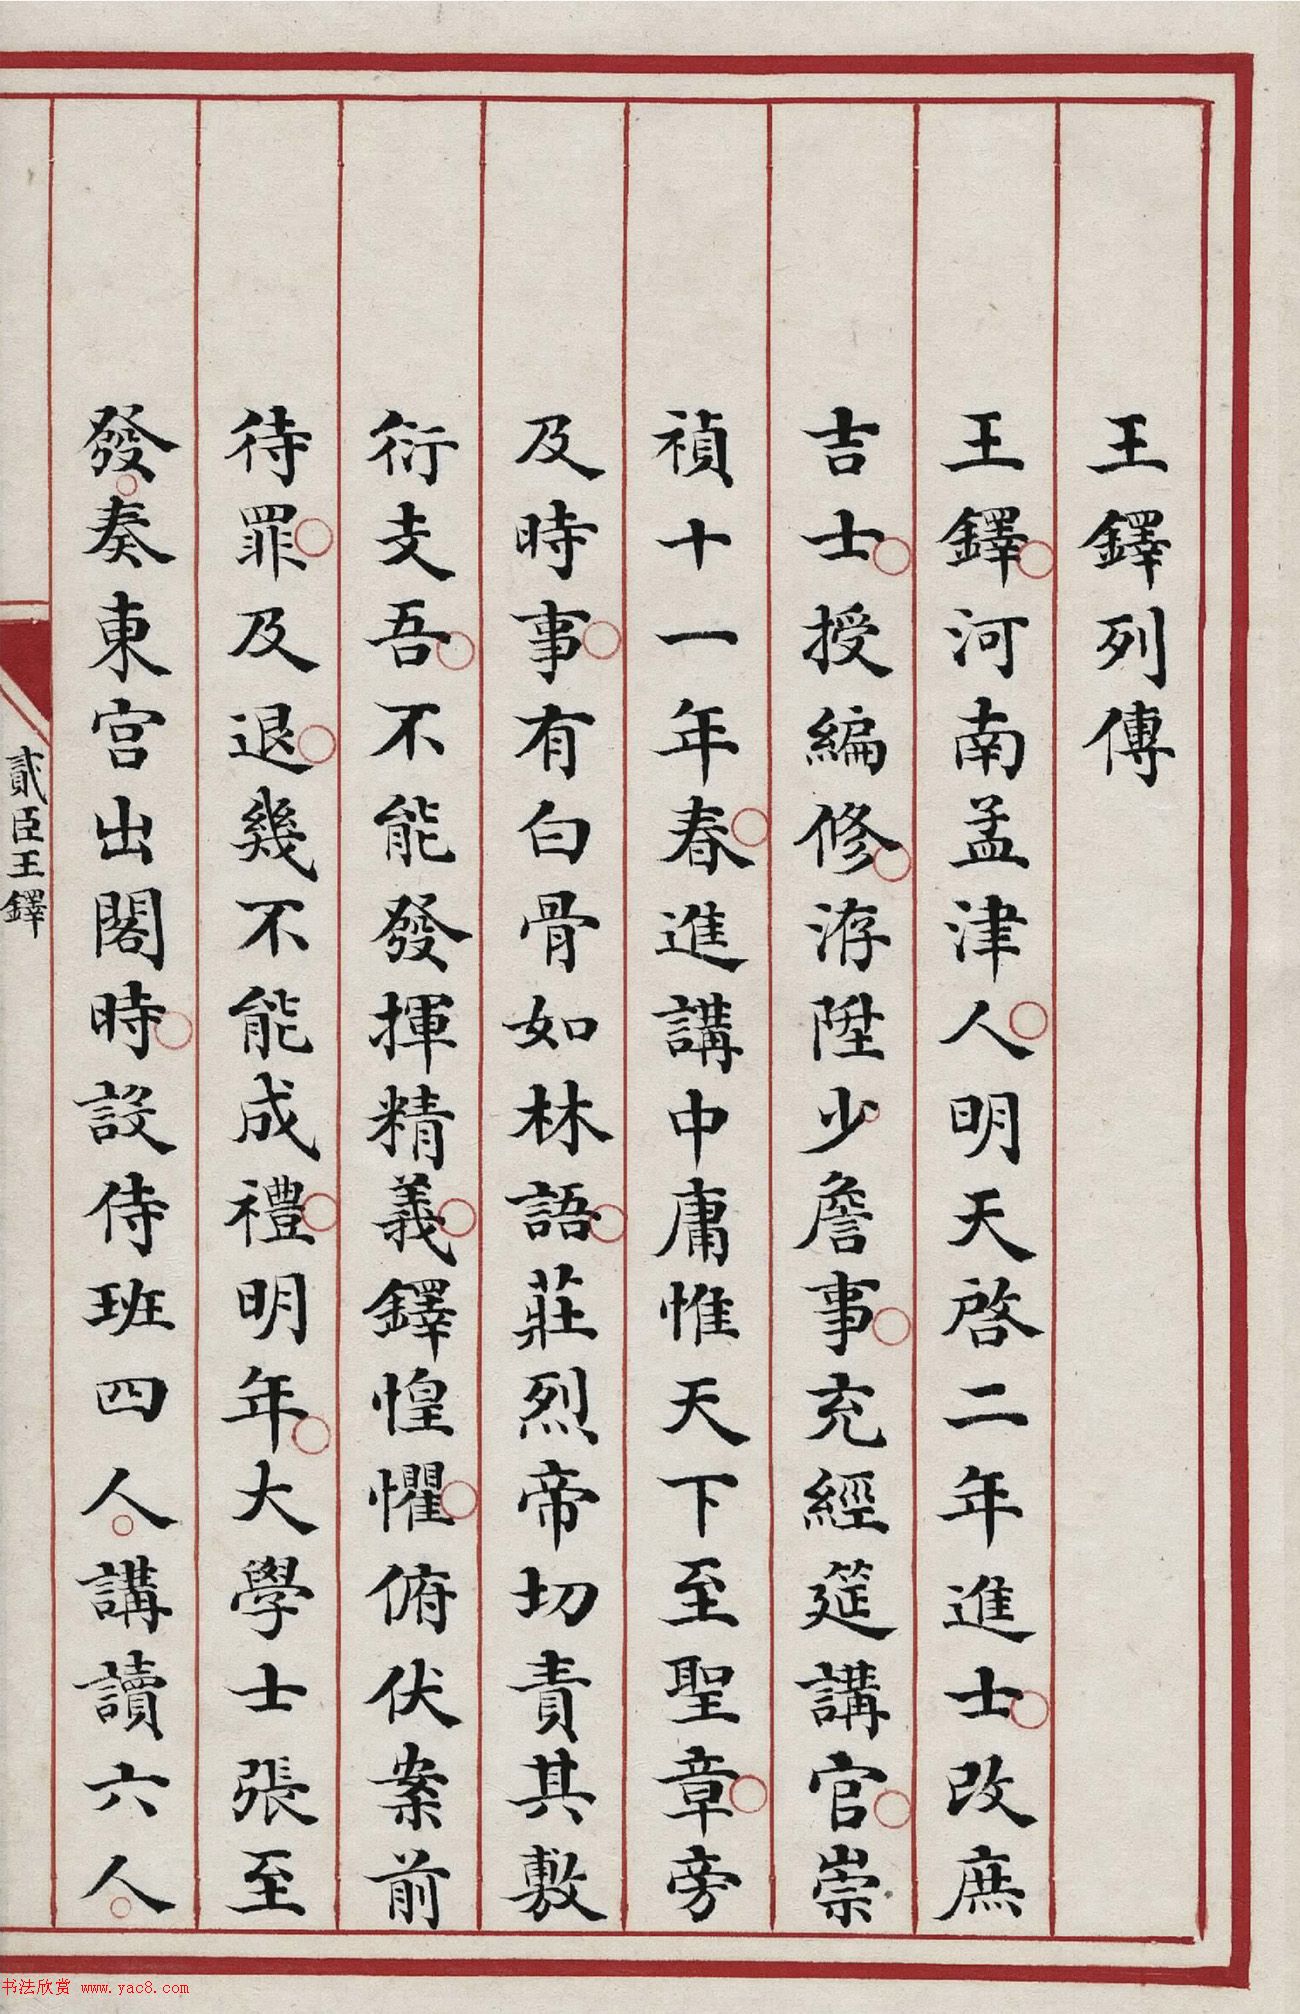 王鐸列傳
王鐸河南孟津人明天啓二年進士改庶
吉士授編修洊陞少詹事充經筵講官崇
禎十一年春進講中庸惟天下至聖章旁
及時事有白骨如林語莊烈帝切責其敷
衍支吾不能發揮精義鐸惶懼俯伏案前
待罪及退幾不能成禮明年大學士張至
發奏東宮出閣時設侍班四人講讀六人
貳臣王鐸
书法欣赏 www.yac8.com